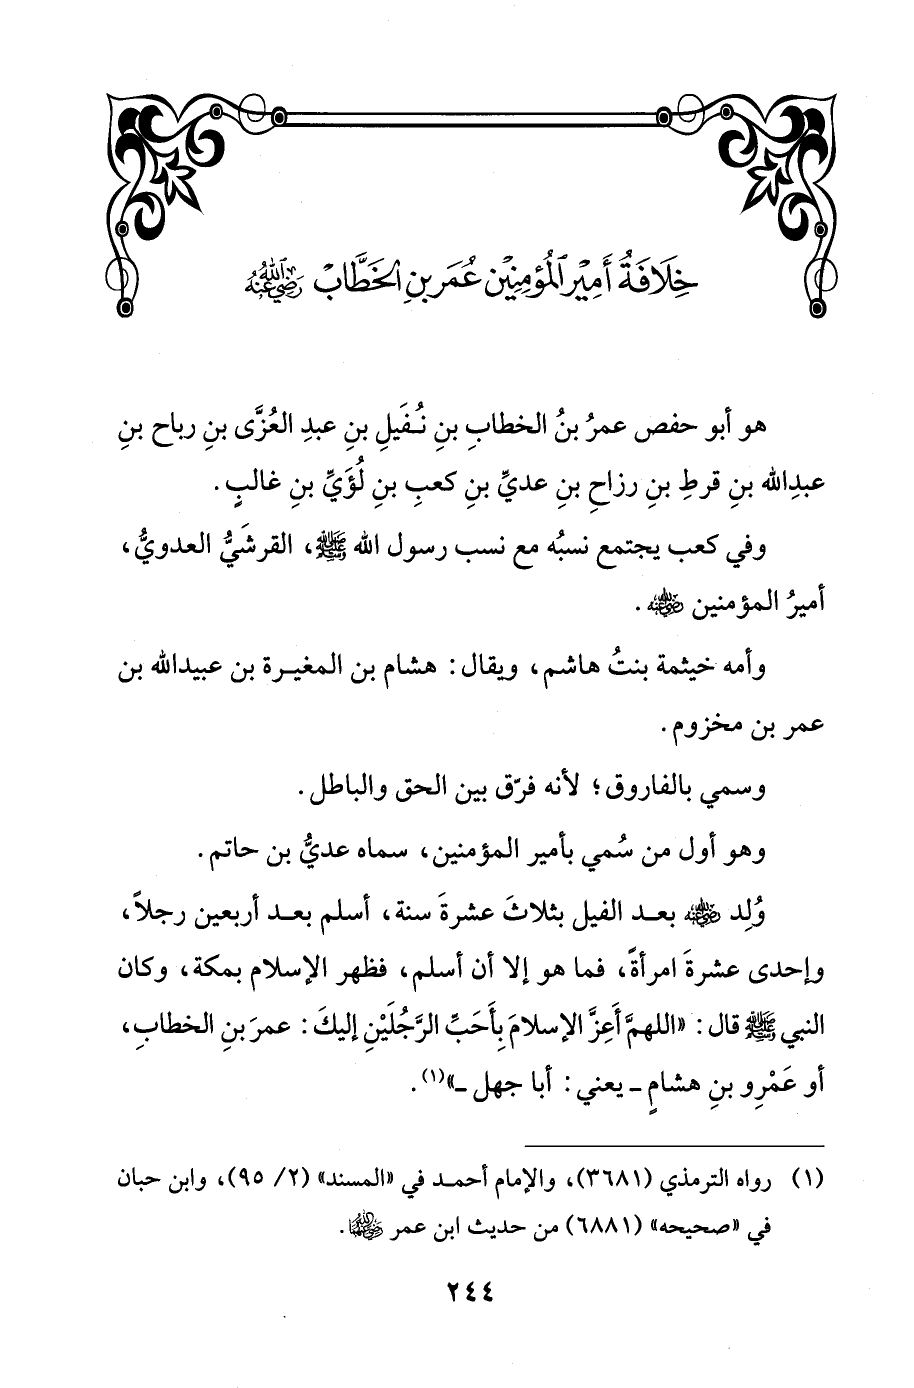 خِلَافَةُ أَمِيْرِ المُؤْمِنِيْنَ عُمَرَ بنِ الخَطَّابِ رَضِيَ اللهُ عَنْهُ
هو أبو حفص عمرُ بنُ الخطابِ بنِ نُفَيلِ بنِ عبدِ العُزَّى بنِ رباح بنِ
عبدِالله بنِ قرطِ بنِ رزاحِ بنِ عديِّ بنِ كعبِ بنِ لُؤَيِّ بنِ غالبٍ.
وفي كعب يجتمع نسبُه مع نسب رسول الله ﷺ، القرشَيُّ العدويُّ،
أميرُ المؤمنين رضي الله عنه.
وأمه خيثمة بنتُ هاشم، ويقال: هشام بن المغيرة بن عبيدالله بن
عمر بن مخزوم.
وسمي بالفاروق؛ لأنه فرّق بين الحق والباطل.
وهو أول من سُمي بأمير المؤمنين، سماه عديُّ بن حاتم.
وُلِد رضي الله عنه بعد الفيل بثلاثَ عشرةَ سنة، أسلم بعد أربعين رجلاً،
وإحدى عشرةَ امرأةً، فما هو إلا أن أسلم، فظهر الإسلام بمكة، وكان
النبي ﷺ قال: «اللهمَّ أَعِزَّ الإسلامَ بِأَحَبِّ الرَّجُلَيْنِ إليكَ: عمرَ بنِ الخطابِ،
أو عَمْرِو بنِ هشامٍ ـ يعني: أبا جهل ـ»(١).
(١) رواه الترمذي (٣٦٨١)، والإمام أحمد في «المسند» (٢/ ٩٥)، وابن حبان
في «صحيحه» (٦٨٨١) من حديث ابن عمر رضي الله عنهما.
٢٤٤